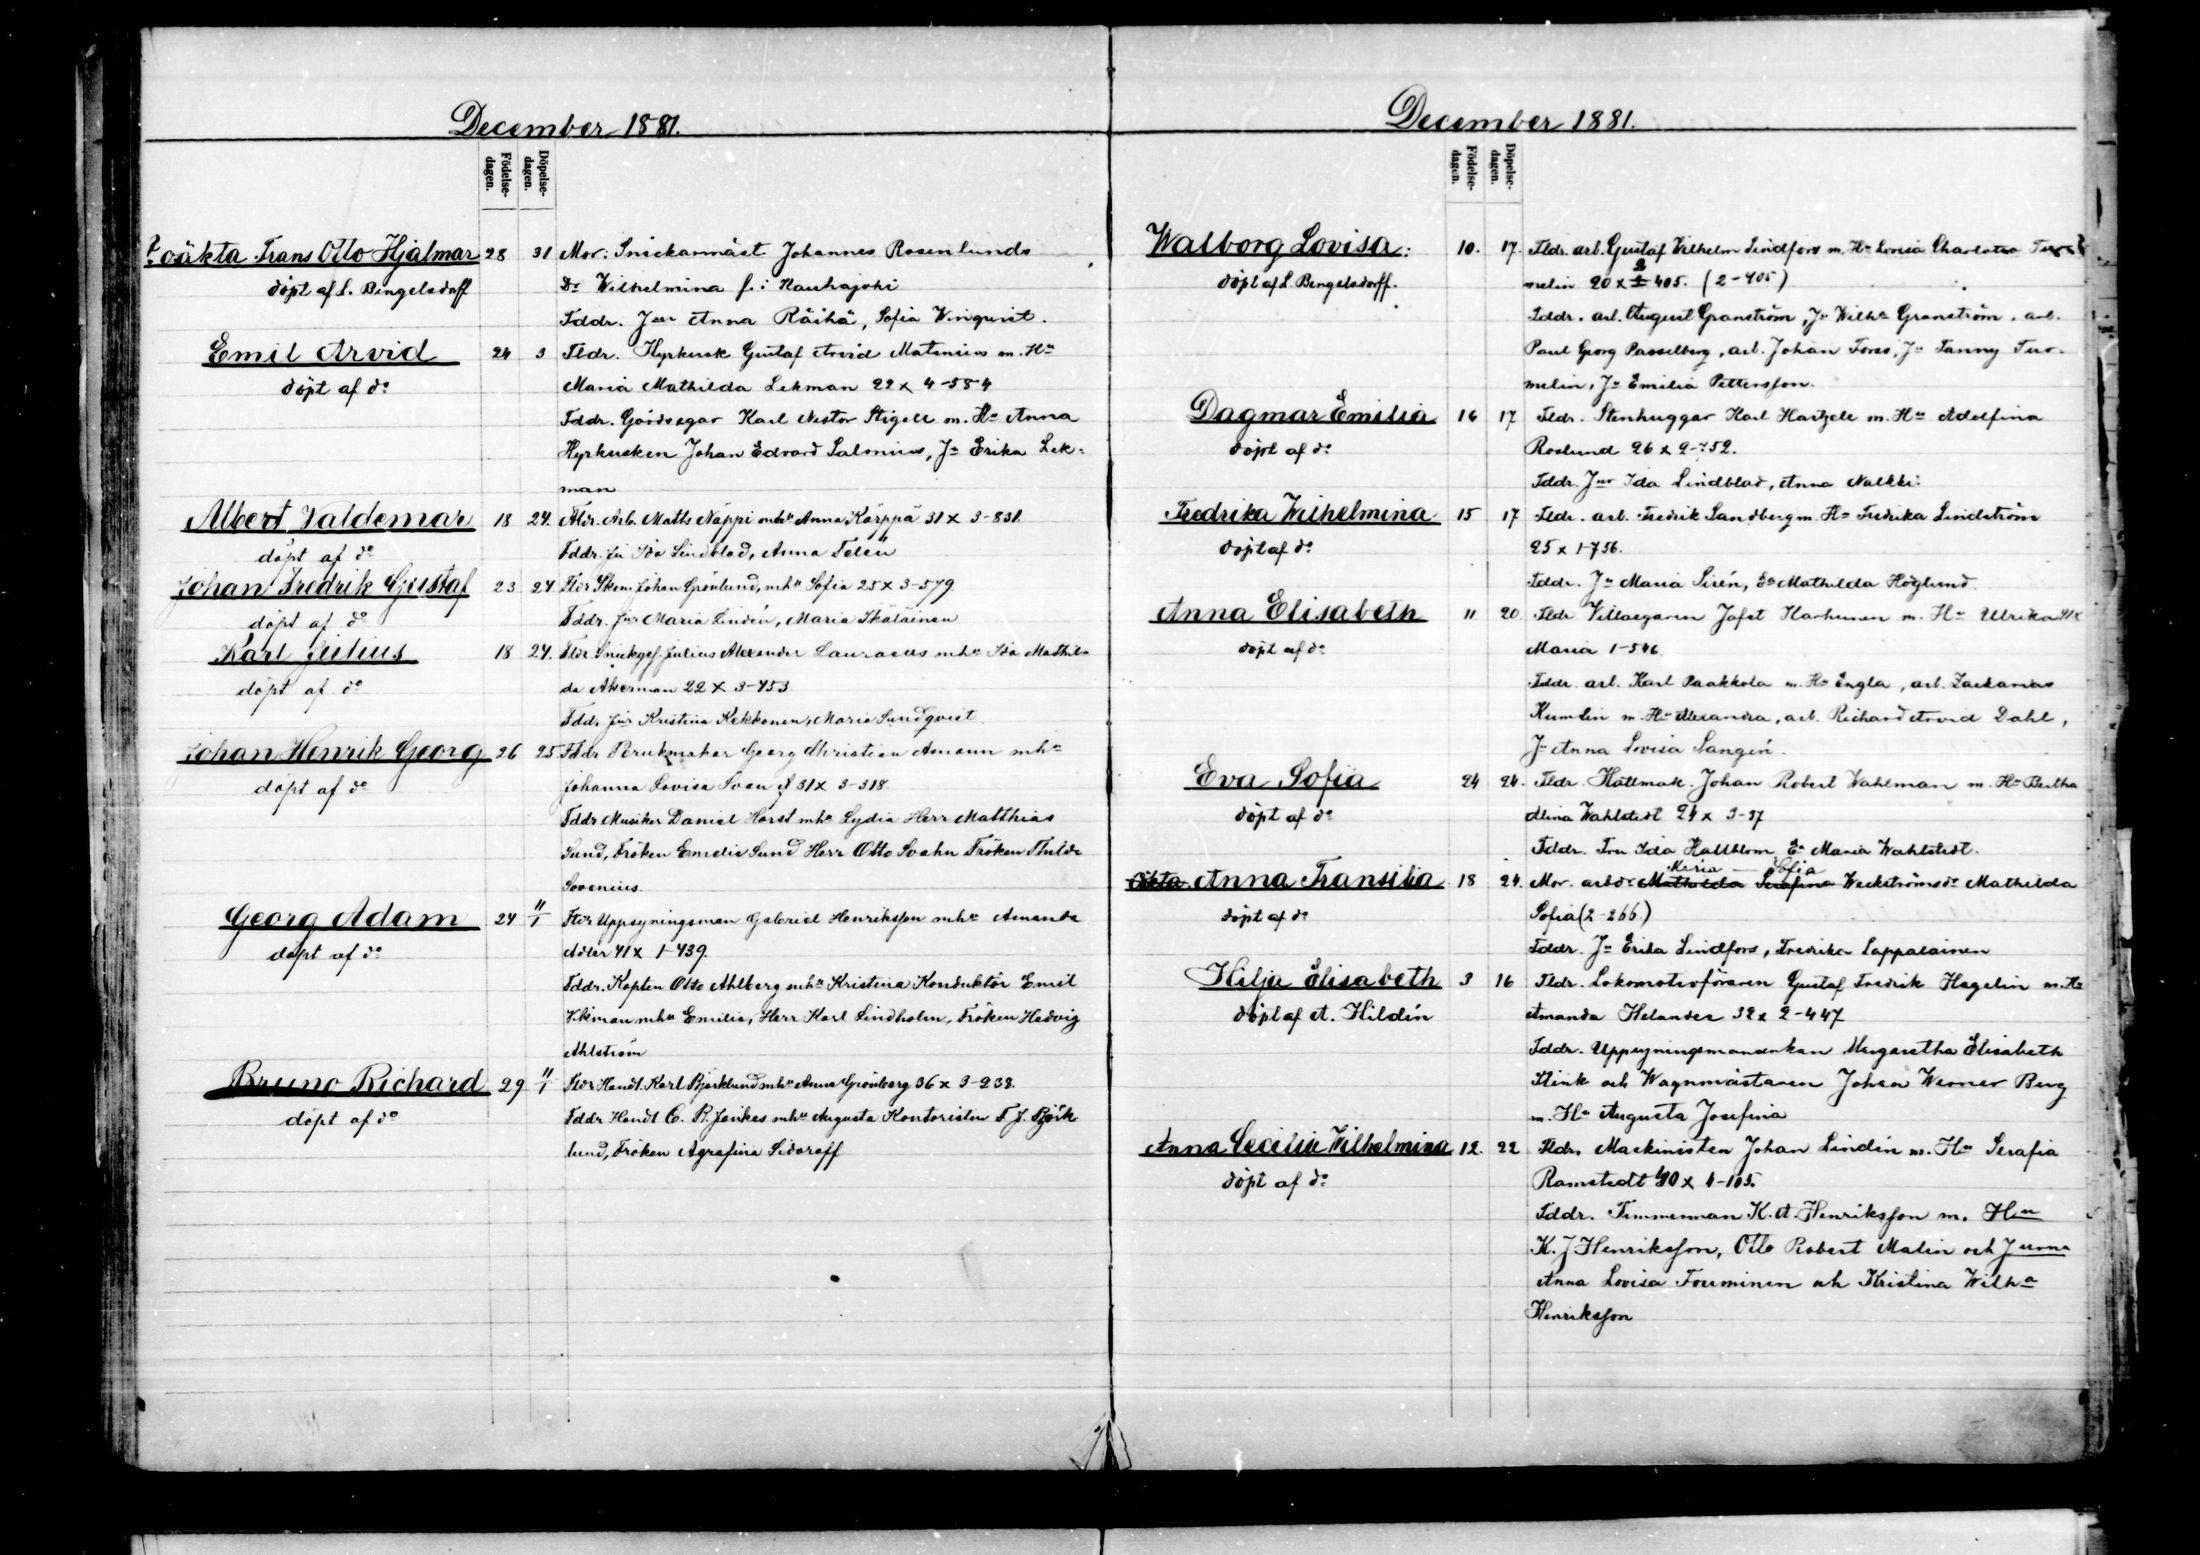 December 1881.
Födelse-dagen.
Döpelse-dagen.
? oäkta Frans Otto Hjalmar 28 31 Mor: Snickarmäst. Johannes Rosenlunds
döpt af L. Bengelsdorff Dr Wilhelmina f. i Kauhajoki
Fddr. Jnr Anna Räihä, Sofia Winqvist.
Emil Arvid 24 3 Fldr. Hyrkusk Gustaf Arvid Matenius m. Hu
döpt af do Maria Mathilda Lekman 22 x 4-584
Fddr. Gårdsegar Karl Nestor Stigell m. Hu Anna
Hyrkusken Johan Edvard Salonius, Ja Erika Lek-
man
Albert Valdemar 18 24. Fldr. Arb. Matts Näppi mhu Anna Kärppä 31 x 3-831
döpt af do Fddr. jnr Ida Lindblad, Anna Telén
Johan Fredrik Gustaf 23 27 Fldr Skom. Johan Grönlund, mhu Sofia 25 x 3-579.
döpt af do Fddr. jnr Maria Lindén, Maria Ikäläinen
Karl Julius 18 27. Fldr. Snickges. Julius Alexander Lauraeus mhu Ida Mathil-
döpt af do da Akerman 22 x 3-453
Fddr jnr Kristina Kekkonen, Maria Sundqvist
Johan Henrik Georg 26 25 Fldr Perukmakar Georg Christian Amann mhu
döpt af do Johanna Lovisa 31 x 3-318
Fddr Musiker Daniel Horst mhu Lydia Herr Matthias
Sund, Fröken Emelie Sund Herr Otto Svahn Fröken Thilda
Sovenius.
Georg Adam 24 11/1 Fldr Uppsyningsman Gabriel Henriksson mhu Amanda
döpt af do Adler 41 x 1-439.
Fddr. Kapten Otto Ahlberg mhu Kristina Konduktör Emil
Ekman mhu Emilia, Herr Karl Lindholm, Fröken Hedvig
Ahlström
Bruno Richard 29 11/1 Fldr Handl. Karl Björklund mhu Anna Grönberg 36 x 3-238.
döpt af do Fddr Handl C. R. mhu Augusta Kontoristen F. J. Björk
lund, Fröken Agrafina Sidoroff
December 1881.
Födelse-dagen.
Döpelse-dagen.
Walborg Lovisa. 10. 17. Fldr. arb. Gustaf Wilhelm Lindfors m. Hu Lovisa Charlotta Tur-
döpt af L. Bengelsdorff. melin 20 x 2-405. (2-405)
Fddr. arb. August Granström, Ja Wilha Granström, arb.
Paul Georg Passelberg, arb. Johan Forss, Ja Fanny Tur-
melin, Ja Emilia Pettersson.
Dagmar Emilia 16 17 Fldr. Stenhuggar Karl Hartzell m. Hu Adolfina
döpt af do Roslund 26 x 2-752.
Fddr. Jnr Ida Lindblad, Anna Nalkki.
Fredrika Wilhelmina 15 17 Fldr. arb. Fredrik Sandberg m. Hu Fredrika Lindström
döpt af do 25 x 1-756.
Fddr. Ja Maria Sirén, Ea Mathilda Höglund.
Anna Elisabeth 11 20 Fldr Villaegaren Jafet Karhunen m. Hu Ulrika 41 x
döpt af do Maria 1-546
Fddr. arb. Karl Paakkola m. Hu Engla, arb. Zackarias
Kumlin m. Hu Alexandra, arb. Richard Arvid Dahl,
Ja Anna Lovisa Langén.
Eva Sofia 24 24. Fldr. Hattmak. Johan Robert Wahlman m. Hu Bertha
döpt af do Alina Wahlstedt 24 x 3-37
Fddr. Fru Ida Hallblom Ea Maria Wahlstedt.
Maria — Sofia
Oäkta Anna Fransilia 18 24. Mor. arb. dr Mathilda Serafina Weckströms dr Mathilda
döpt af do Sofia (2-266)
Fddr. Ja Erika Lindfors, Fredrika Lappalainen
Hilja Elisabeth 3 16 Fldr. Lokomotivföraren Gustaf Fredrik Hagelin m. Hu
döpt af A. Hildén Amanda Helander 32 x 2-447
Fddr. Uppsyningsmansenkan Margaretha Elisabeth
Klink och Wagnmästaren Johan Werner Berg
m. Hu Augusta Josefina
Anna Cecilia Wilhelmina 12. 22 Fldr. Maskinisten Johan Lindén m. Hu Serafia
döpt af do Ramstedt 40 x 4-105.
Fddr. Timmerman K. A. Henriksson m. Hu
K. J. Henriksson, Otto Robert Malin och Jurna
Anna Lovisa Touminen och Kristina Wilha
Henriksson